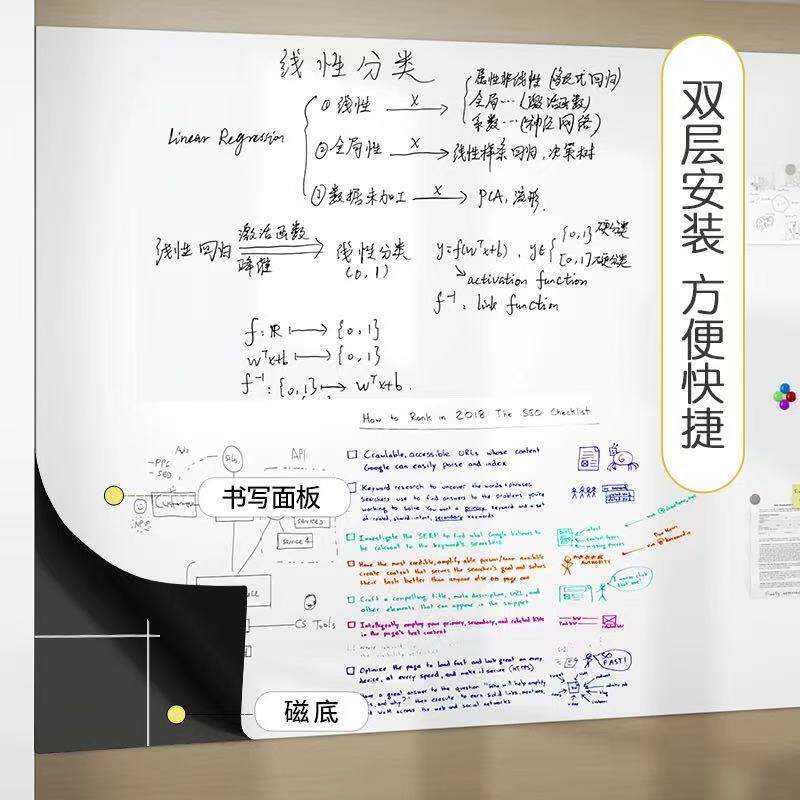 线性分类
Linear Regression
① 线性 —x→ 属性非线性 (多项式回归)
全局… (激活函数)
系数… (神经网络)
② 全局性 —x→ 线性样条回归, 决策树
③ 数据未加工 —x→ PCA, 流形
线性回归 激活函数 线性分类
降维 (0, 1)
y=f(wᵀx+b), y∈ {0,1} 硬分类
[0,1] 硬分类
activation function
f⁻¹: link function
f: ℝ ⟼ {0,1}
wᵀx+b ⟼ {0,1}
f⁻¹: {0,1} ⟼ wᵀx+b
双层安装 方便快捷
How to Rank in 2018 The SEO Checklist
Crawlable, accessible URLs whose content
Google can easily parse and index
Keyword research to uncover the words+phrases
Searchers use to find answers to the problems you're
working to solve. You want a primary keyword and a set
of related, shared-intent, secondary keywords
Investigate the SERP to find what Google believes to
be relevant to the keyword's searchers
Have the most credible, amplifiable person/team available
create content that serves the searcher's goal and solves
their task better than anyone else on page one
Craft a compelling title, meta description, URL, and
other elements that can appear in the snippet
Intelligently employ your primary, secondary, and related KWs
in the page's text content
Optimize the page to load fast and look great on every
device, at every speed, and make it secure (HTTPS)
have a great answer to the question "Who will help amplify
and why?" then execute to earn build links, mentions,
across the web and social networks
AUTHORITY
SO
FAST!
Ads
- PPC
- SEO
API
Customer
service 4
CS Tools
书写面板
磁底